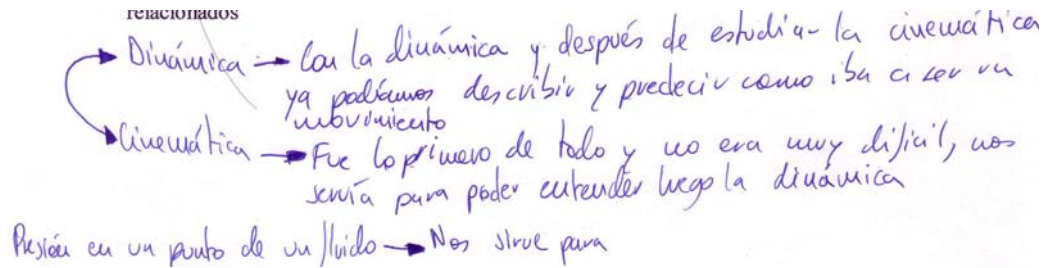 relacionados
Dinámica → Con la dinámica y después de estudiar la cinemática
ya podíamos describir y predecir como iba a ser un
movimiento
Cinemática → Fue lo primero de todo y no era muy difícil, nos
servía para poder entender luego la dinámica
Presión en un punto de un fluido → Nos sirve para